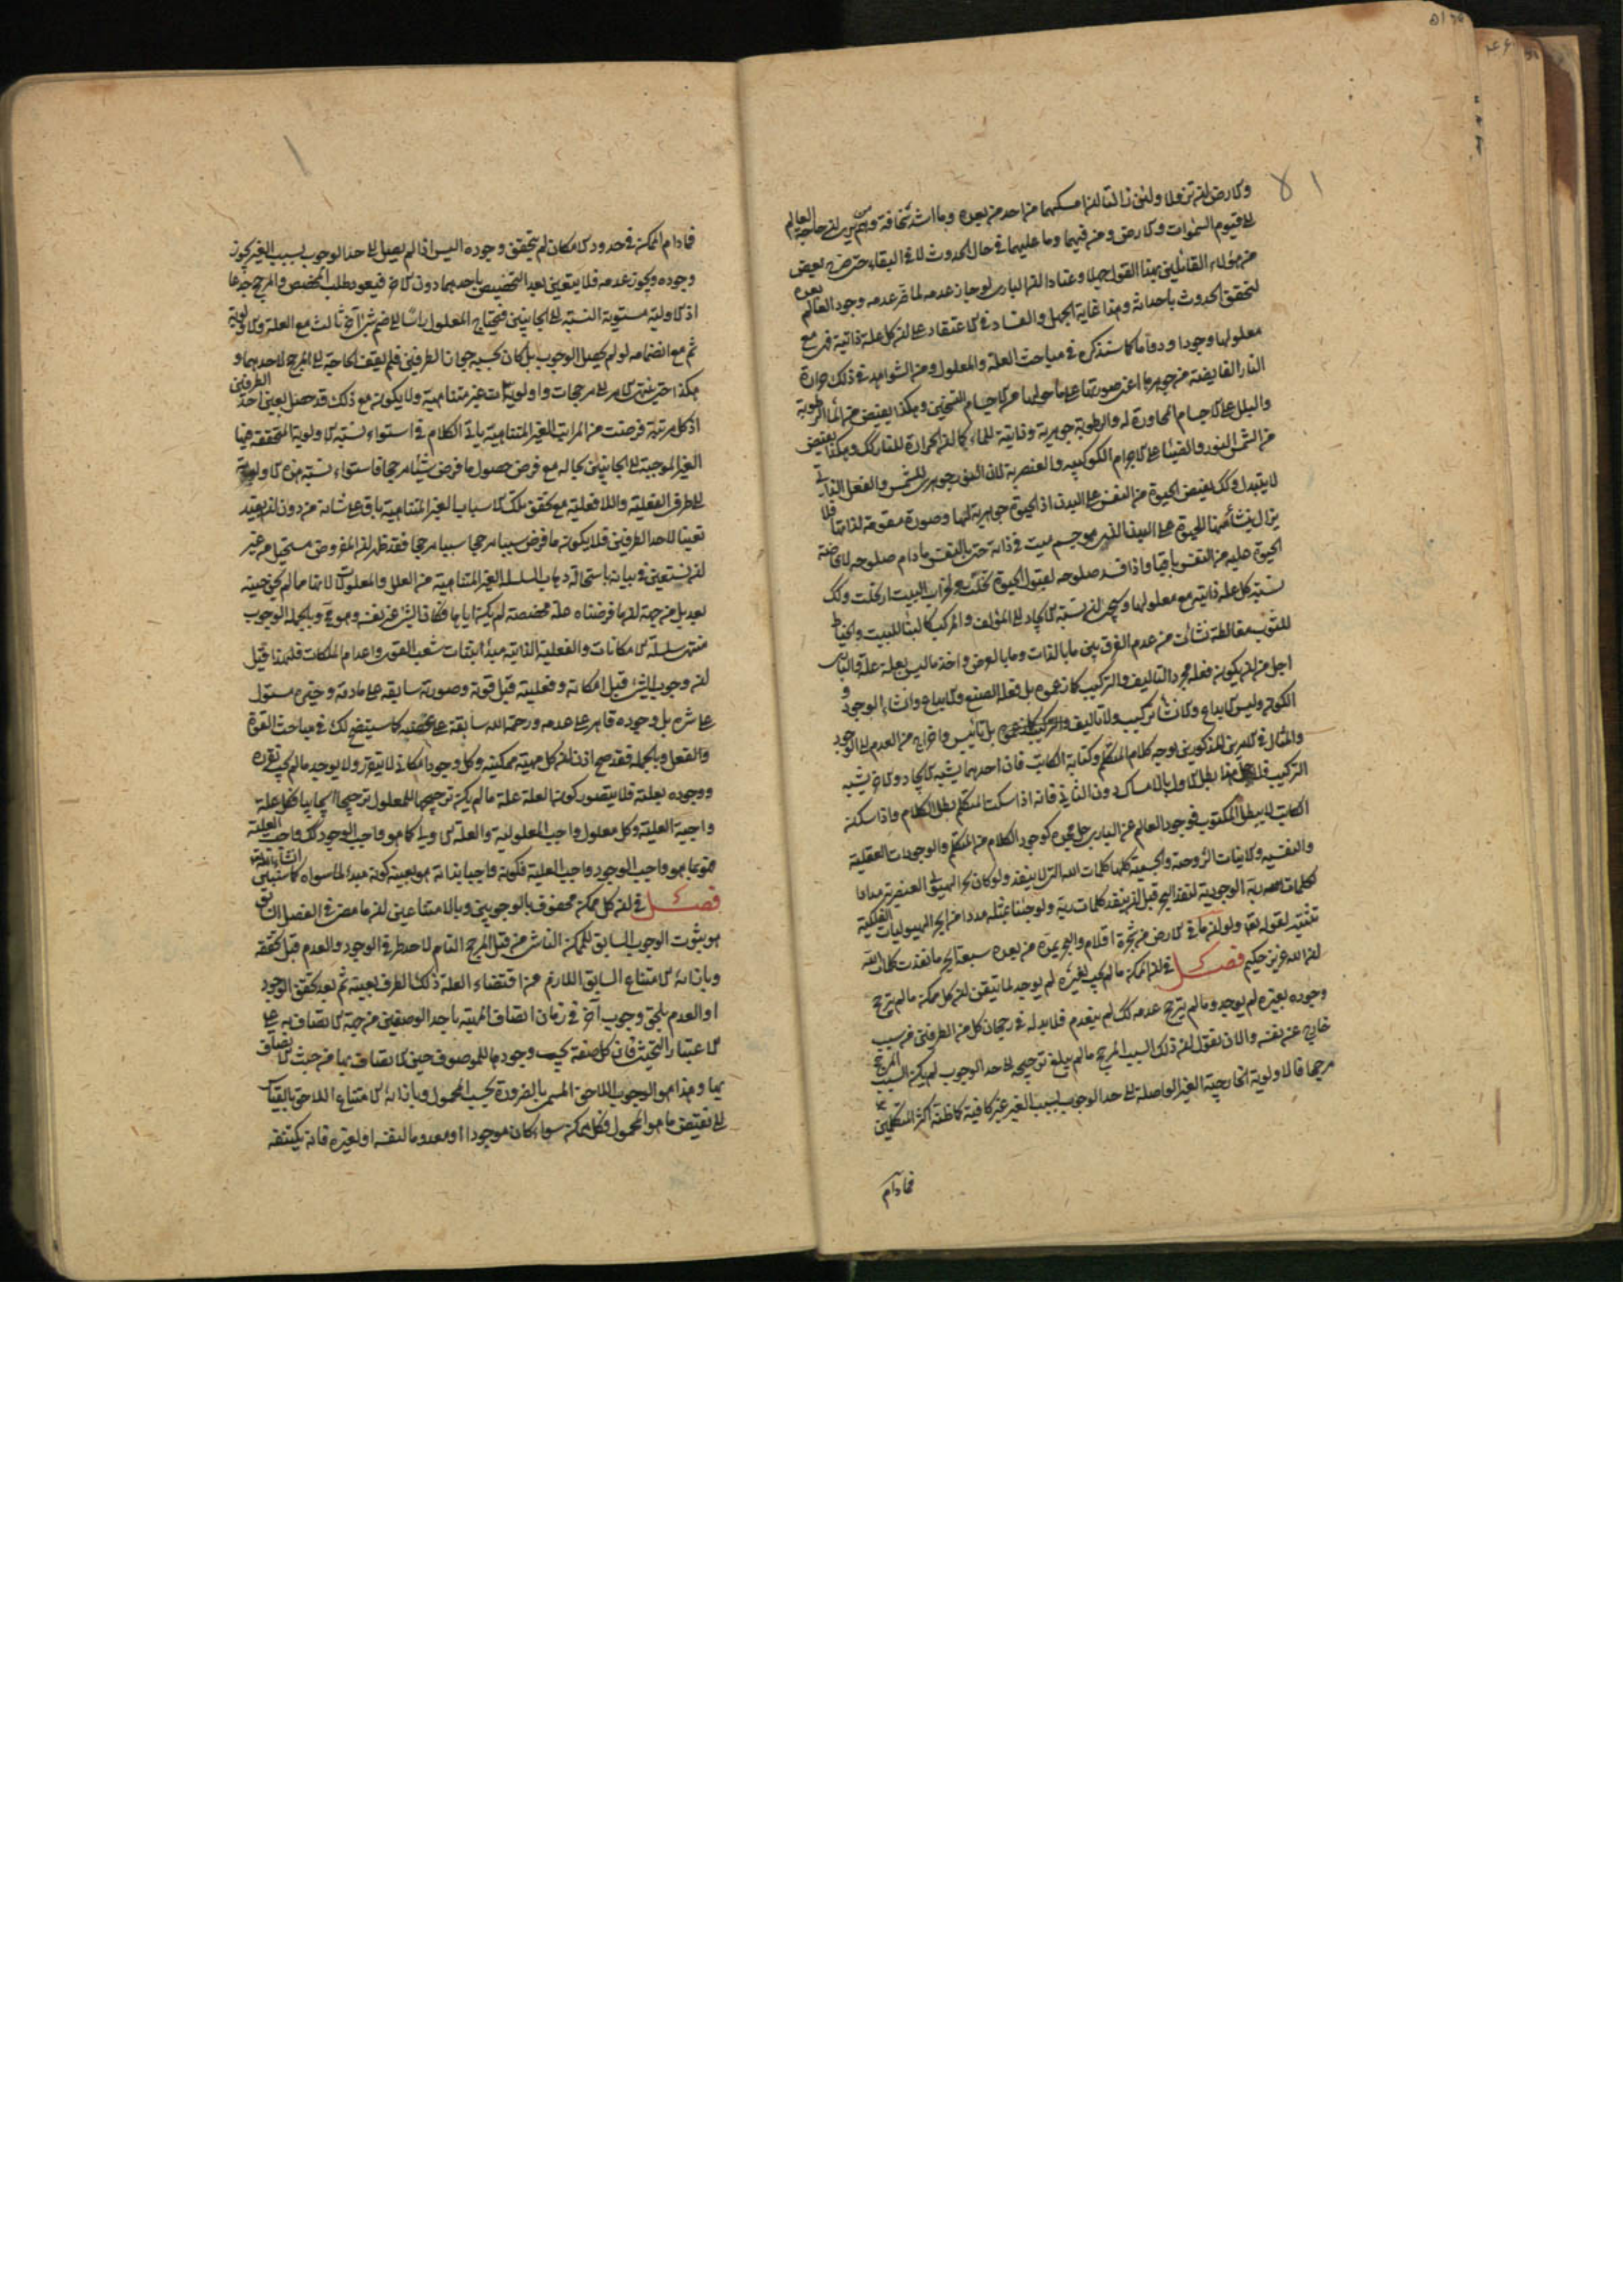 والارض ان تزولا ولئن زالتا ان امسكهما من احد من بعده وما اشد سخافة وهم من يرى ان حاجة العالم
الى قيوم السموات والارض ومن فيهما وما عليهما في حال الحدوث لا في البقاء حتى صرح بعض
من هؤلاء القائلين بهذا القول جهلا وعنادا ان الباري لو جاز عدمه لما ضر عدمه وجود العالم بعده
لتحقق الحدوث باحداثه وهذا غاية الجهل والفساد في الاعتقاد على ان كل علة ذاتية فهي مع
معلولها وجودا ودواما كما سنذكره في مباحث العلة والمعلول ومن الشواهد في ذلك حرارة
النار الفايضة من جوهرها اعني صورتها على ما حولها من الاجسام بالتسخين وهكذا يفيض من الماء الرطوبة
والبلل على الاجسام المجاورة له والرطوبة جوهرية وذاتية للماء كما ان الحرارة للنار كك وهكذا يفيض
من الشمس النور والضياء على الاجرام الكوكبية والعنصرية لان النور جوهري للشمس والفعل الذاتي
لا يتبدل وكك يفيض الحيوة من النفس على البدن اذ الحيوة جوهرية لها وصورة مقومة لذاتها فلا
يزال ينشأ منها الحيوة على البدن الذي هو جسم ميت في ذاته حي بالنفس ما دام صلوحه لافاضة
الحيوة عليه من النفس باقيا واذا فسد صلوحه لقبول الحيوة تخلت عن خراب البيت ارتحلت وكك
نسبة كل علة ذاتية مع معلولها وسيجيء ان نسبة الايجاد الى المؤلف والمركب كالبناء للبيت والخياط
للثوب مغالطة نشأت من عدم الفرق بين ما بالذات وما بالعرض واخذ ما ليس بعلة علة والباري
اجل من ان يكون فعله مجرد التاليف والتركيب كما زعموه بل فعله الصنع والابداع وانشاء الوجود و
الكون وليس الابداع والانشاء تركيب ولا تاليف بل تاسيس واخراج من العدم الى الوجود
والمثال في الامرين المذكورين اوجه كلام المتكلم وكتابة الكاتب فان احدهما يشبه الايجاد والاخر يشبه
التركيب فلاجل هذا بطل الاول بالامساك دون الثاني فانه اذا سكت المتكلم بطل الكلام واذا سكن
الكاتب لا يبطل المكتوب فوجود العالم عن الباري جل مجده كوجود الكلام من المتكلم والوجودات العقلية
والنفسية والانيات الروحية والجسمية كلها كلمات الله التي لا ينفد ولو كان بحر الهيولى العنصرية مدادا
لكلمات ربه الوجودية لنفد البحر قبل ان ينفد كلمات ربه ولو جئنا بمثله مددا من ابحر الهيوليات الفلكية
لقوله تعالى ولو ان ما في الارض من شجرة اقلام والبحر يمده من بعده سبعة ابحر ما نفدت كلمات الله
ان الله عزيز حكيم فصل في ان الممكن ما لم يجب بغيره لم يوجد لما تيقن ان كل ممكن ما لم يترجح
وجوده بغيره لم يوجد وما لم يترجح عدمه كك لم ينعدم فلابد له في رجحان كل من الطرفين من سبب
خارج عن نفسه والان نقول ان ذلك السبب المرجح ما لم يبلغ ترجيحه الى حد الوجوب لم يكن السبب المرجح
مرجحا فالاولوية الخارجية الغير الواصلة الى حد الوجوب بسبب الغير غير كافية كما ظنه اكثر المتكلمين
فما دام
فما دام الممكن في حدود الامكان لم يتحقق وجوده اليس اذا لم يصل الى حد الوجوب بسبب الغير يجوز
وجوده ويجوز عدمه فلا يتعين بعد التخصيص باحدهما دون الاخر فيعود طلب المخصص والمرجح جذعا
اذ الاولية مستوية النسبة الى الجانبين فيحتاج المعلول الى ضم شيء اخر ثالث مع العلة والاولوية
ثم مع انضمامه لو لم يحصل الوجوب بل كان بحسبه جواز الطرفين فلم يقف الحاجة الى المرجح لاحدهما و
هكذا حتى ينتهي الامر الى مرجحات واولويات غير متناهية ولا يكون مع ذلك قد حصل تعين احد الطرفين
اذ كل مرتبة فرضت من المراتب الغير المتناهية يأتي الكلام في استواء نسبة الاولوية المتحققة فيها
الغير الموجبة الى الجانبين بحاله مع فرض حصول ما فرض شيئا مرجحا فاستواء نسبة هذه الاولوية
الى طرف الفعلية واللافعلية مع تحقق تلك الاسباب الغير المتناهية باق على شانه من دون ان يفيد
تعينا لاحد الطرفين فلا يكون ما فرض سببا مرجحا سببا مرجحا فقد ظهر ان المفروض مستحيل من غير
ان نستعين في بيانه باستحالة ذهاب السلسلة الغير المتناهية من العلل والمعلولات لانها مما لم يحن حينه
بعد بل من جهة ان ما فرضناه علة مخصصة لم يكن اياها فكان الشيء غير نفسه وهو مح وبالجملة الوجوب
منتهى سلسلة الامكانات والفعلية الذاتية مبدأ انبتات شعب القوى واعدام الملكات فلهذا قيل
ان وجوب الشيء قبل امكانه وفعليته قبل قوته وصورته سابقة على مادته وخيره مستول
على شره بل وجوده قاهر على عدمه ورحمة الله سابقة على غضبه كما سيتضح لك في مباحث القوة
والفعل وبالجملة فقد صح اذن ان كل مهية ممكنة وكل وجود امكاني لا يتقرر ولا يوجد ما لم يجب تقرره
ووجوده بعلته فلا يتصور كون العلة علة ما لم يكن ترجيحها للمعلول ترجيحا ايجابيا فكل علة
واجبة العلية وكل معلول واجب المعلولية والعلة الاولى كما هو واجب الوجود كك واجب العلية
فهو بما هو واجب الوجود واجب العلية فكونه واجبا بذاته هو بعينه كونه مبدأ لما سواه كما سنبين ان شاء الله
فصل في ان كل ممكن محفوف بالوجوبين وبالامتناعين ان ما مضى في الفصل السابق
هو ثبوت الوجوب السابق للممكن الناشي من قبل المرجح التام لاحد طرفي الوجود والعدم قبل تحققه
وبازائه الامتناع السابق اللازم من اقتضاء العلة ذلك الطرف بعينه ثم بعد تحقق الوجود
او العدم يلحق وجوب آخر في زمان اتصاف المهية باحد الوصفين من جهة الاتصاف به على
الاعتبار التحيثي فان كل صفة يجب وجودها للموصوف حين الاتصاف بها من حيث الاتصاف
بها وهذا هو الوجوب اللاحق المسمى بالضرورة بحسب المحمول وبازائه الامتناع اللاحق بالقياس
الى نقيض ما هو المحمول فكل ممكن سواء كان موجودا او معدوما لنفسه او لغيره فانه يكتنفه